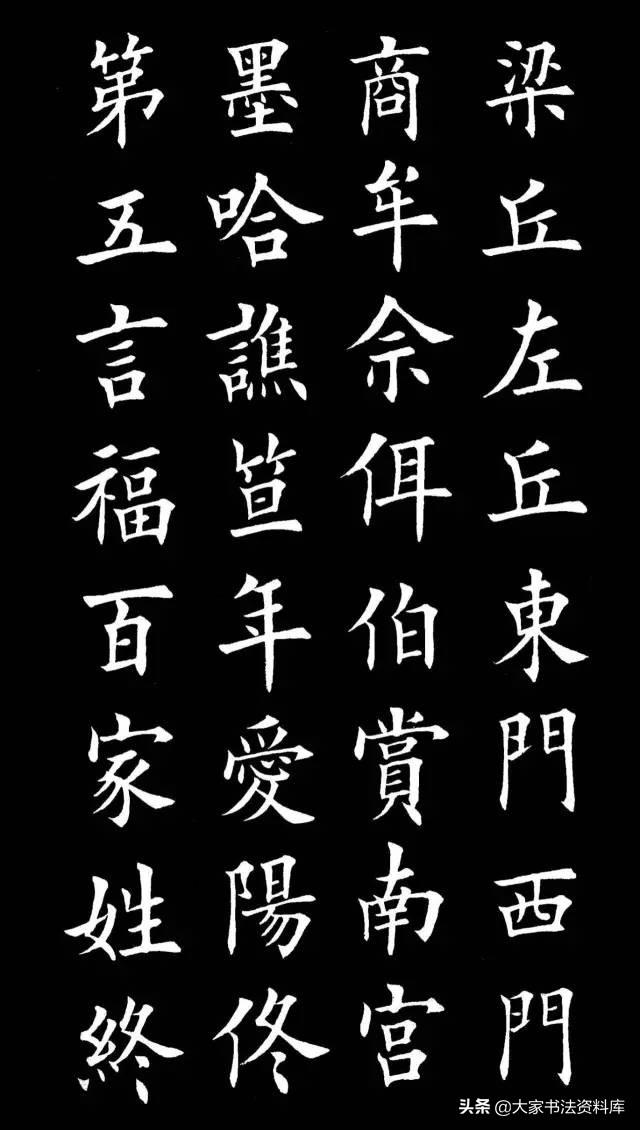 梁丘左丘東門西門
商牟佘佴伯賞南宮
墨哈譙笪年愛陽佟
第五言福百家姓終
头条 @大家书法资料库